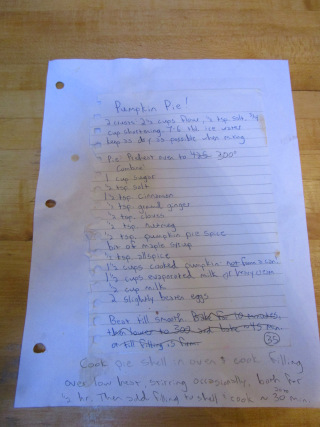 Pumpkin Pie!
2 crust 2½ cups flour, 1 tsp salt, ¾
cup shortening 4-6 tbl ice water
keep as dry as possible when mixing
Pie Preheat oven to 300°
Combine
1 cup sugar
½ tsp. salt
1½ tsp cinnamon
½ tsp. ground ginger
½ tsp. cloves
½ tsp. nutmeg
½ tsp. pumpkin pie spice
bit of maple syrup
½ tsp allspice
1½ cups cooked pumpkin not from a can
1½ cups evaporated milk or heavy cream
½ cup milk
2 slightly beaten eggs
Beat till smooth. Bake for 10 minutes,
then lower to 300 and bake 45 min
or till filling is firm. 35
Cook pie shell in oven & cook filling
over low heat, stirring occasionally, both for
½ hr. Then add filling to shell & cook 30 min.